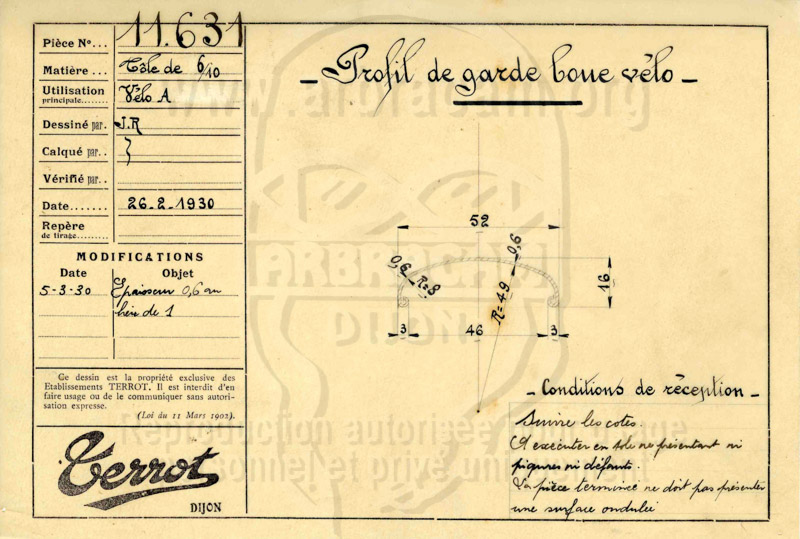 Pièce N°... 11.631
Matière ... Tôle de 6/10
Utilisation
principale........ Vélo A
Dessiné par. J.R
Calqué par.. }
Vérifié par..
Date....... 26-2-1930
Repère
de tirage.........
MODIFICATIONS
Date Objet
5-3-30 Epaisseur 0,6 au
lieu de 1
Ce dessin est la propriété exclusive des
Etablissements TERROT. Il est interdit d'en
faire usage ou de le communiquer sans autori-
sation expresse.
(Loi du 11 Mars 1902).
Terrot
DIJON
- Profil de garde boue vélo -
52
0,6
0,6
R=8
R=49
16
3
46
3
- Conditions de réception -
Suivre les cotes.
A exécuter en tole ne présentant ni
piqures ni défauts.
La pièce terminée ne doit pas présenter
une surface ondulée
www.arbracam.org
ARBRACAM
DIJON
Reproduction autorisée
personnel et privé